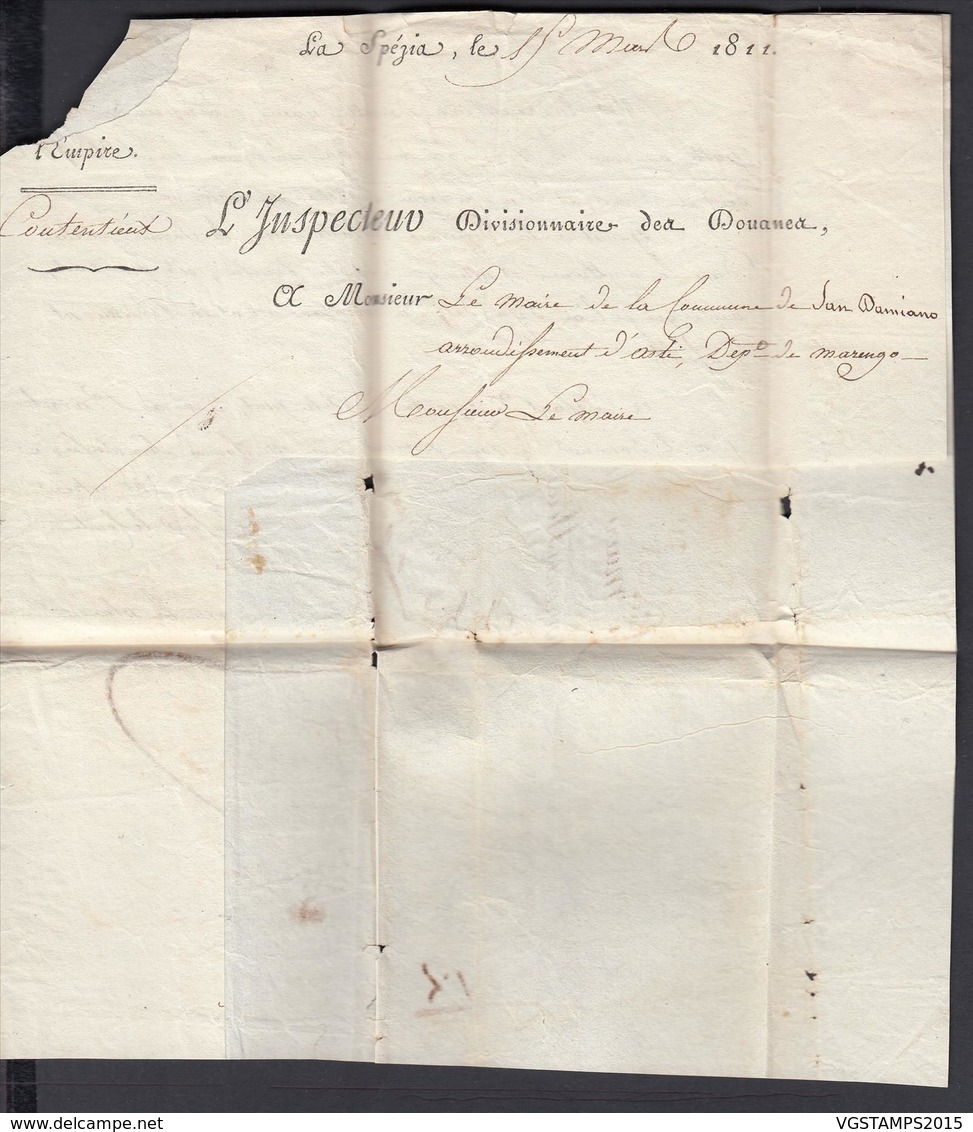 La Spézia, le 15 Mars 1811.
l'Empire.
Contentieux
L'Inspecteur Divisionnaire des Douanes,
A Monsieur Le maire de la Commune de San Damiano
arrondissement d'asti, Dep.º de marengo
Monsieur Le maire
VGSTAMPS2015